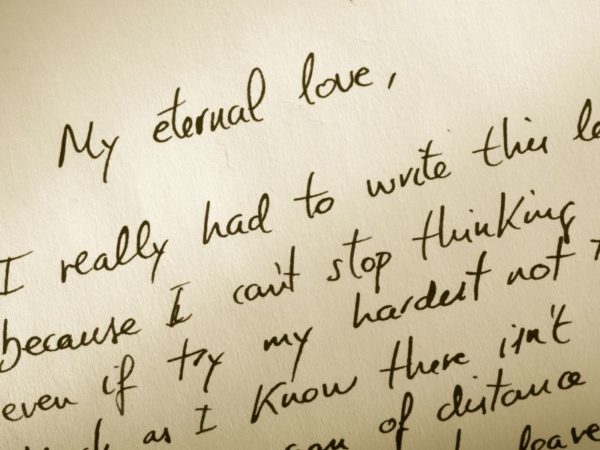 My eternal love,
I really had to write this
because I can't stop thinking
even if try my hardest not
as I know there isn't
of distance
leave